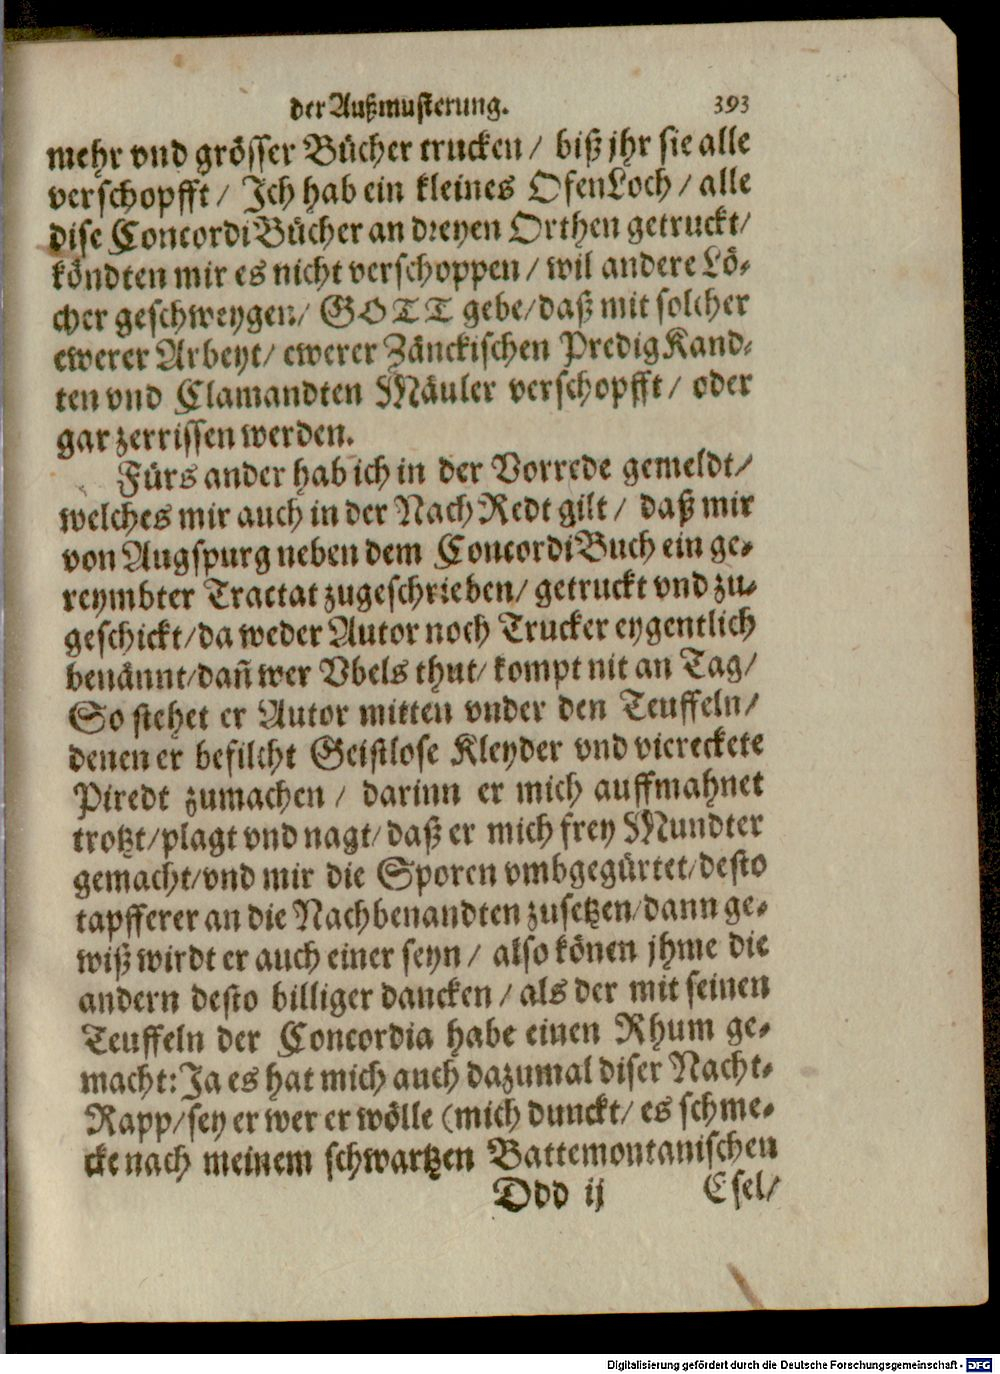 der Außmusterung. 393
mehr vnd grösser Bücher trucken / biß jhr sie alle
verschopfft / Ich hab ein kleines OfenLoch / alle
dise ConcordiBücher an dreyen Orthen getruckt/
köndten mir es nicht verschoppen / wil andere Lö-
cher geschweygen/ GOTT gebe/daß mit solcher
ewerer Arbeyt/ ewerer Zänckischen PredigKand-
ten vnd Clamandten Mäuler verschopfft / oder
gar zerrissen werden.
Fürs ander hab ich in der Vorrede gemeldt/
welches mir auch in der NachRedt gilt / daß mir
von Augspurg neben dem ConcordiBuch ein ge-
reymbter Tractat zugeschrieben/ getruckt vnd zu-
geschickt/da weder Autor noch Trucker eygentlich
benännt/dañ wer Vbels thut/ kompt nit an Tag/
So stehet er Autor mitten vnder den Teuffeln/
denen er befilcht Geistlose Kleyder vnd viereckete
Piredt zumachen / darinn er mich auffmahnet
trotzt/plagt vnd nagt/daß er mich frey Mundter
gemacht/vnd mir die Sporen vmbgegürtet/desto
tapfferer an die Nachbenandten zusetzen/dann ge-
wiß wirdt er auch einer seyn / also könen jhme die
andern desto billiger dancken / als der mit seinen
Teuffeln der Concordia habe einen Rhum ge-
macht: Ja es hat mich auch dazumal diser Nacht-
Rapp/sey er wer er wölle (mich dunckt/ es schme-
cke nach meinem schwartzen Battemontanischen
Ddd ij Esel/
Digitalisierung gefördert durch die Deutsche Forschungsgemeinschaft - DFG